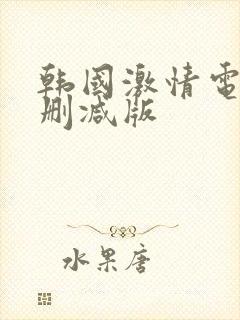 韩國激情電
删减版
水果唐